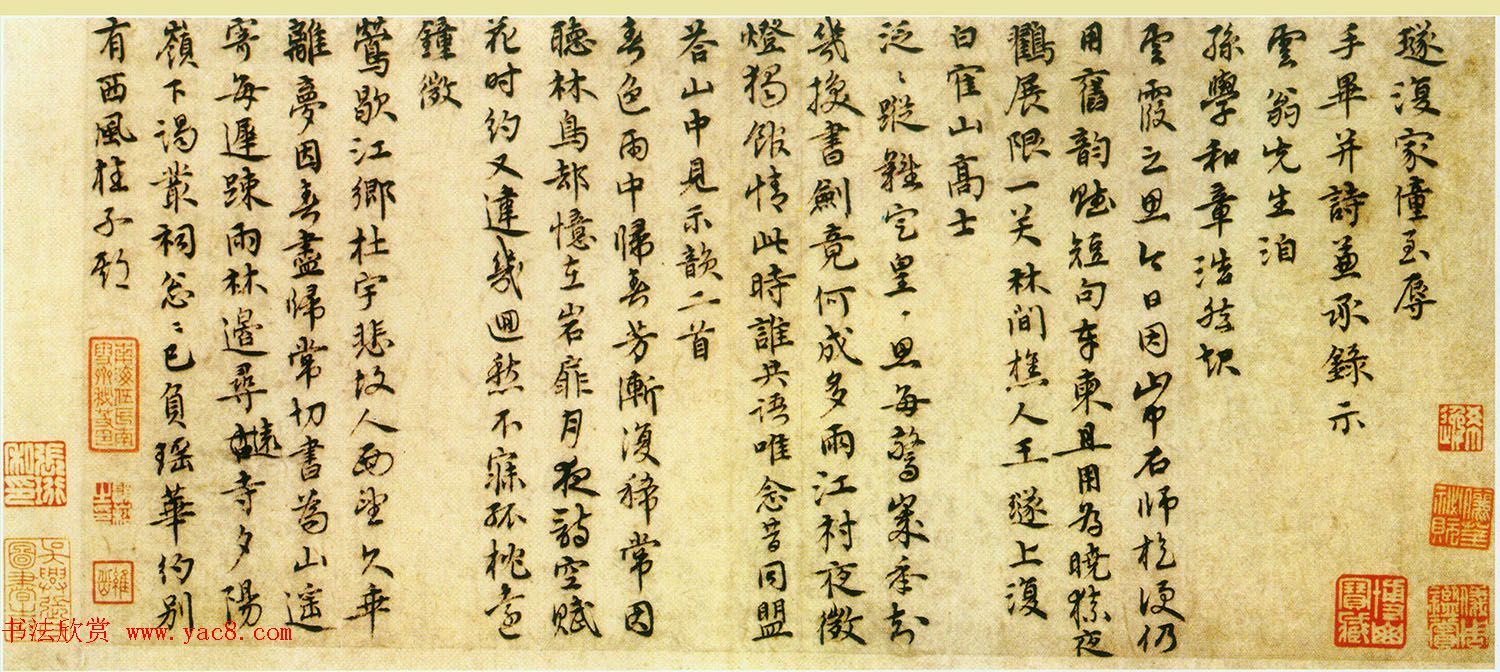 璲復家僮至辱
手畢并詩兼承錄示
雲翁先生洎
孫學和章浩然切
雲霞之思今日因山中石師於便仍
用舊韵賦短句奉柬且用為曉猿夜
鶴展限一笑林間樵人王璲上復
白雀山高士
泛〻蹤難定皇〻思每驚知
幾換書劍竟何成多雨江村夜微
燈獨館情此時誰共語唯念昔同盟
荅山中見示韻二首
春色雨中歸春芳漸復稀常因
聽林鳥却憶在岩扉月夜詩空賦
花時約又違幾迴愁不寐孤枕遠
鐘微
鶯歇江鄉杜宇悲故人西望久乖
離夢因春盡歸常切書為山遙
寄每遲踈雨林邊尋遠寺夕陽
嶺下謁叢祠怱〻已負瑤華約別
有西風桂子期
书法欣赏 www.yac8.com